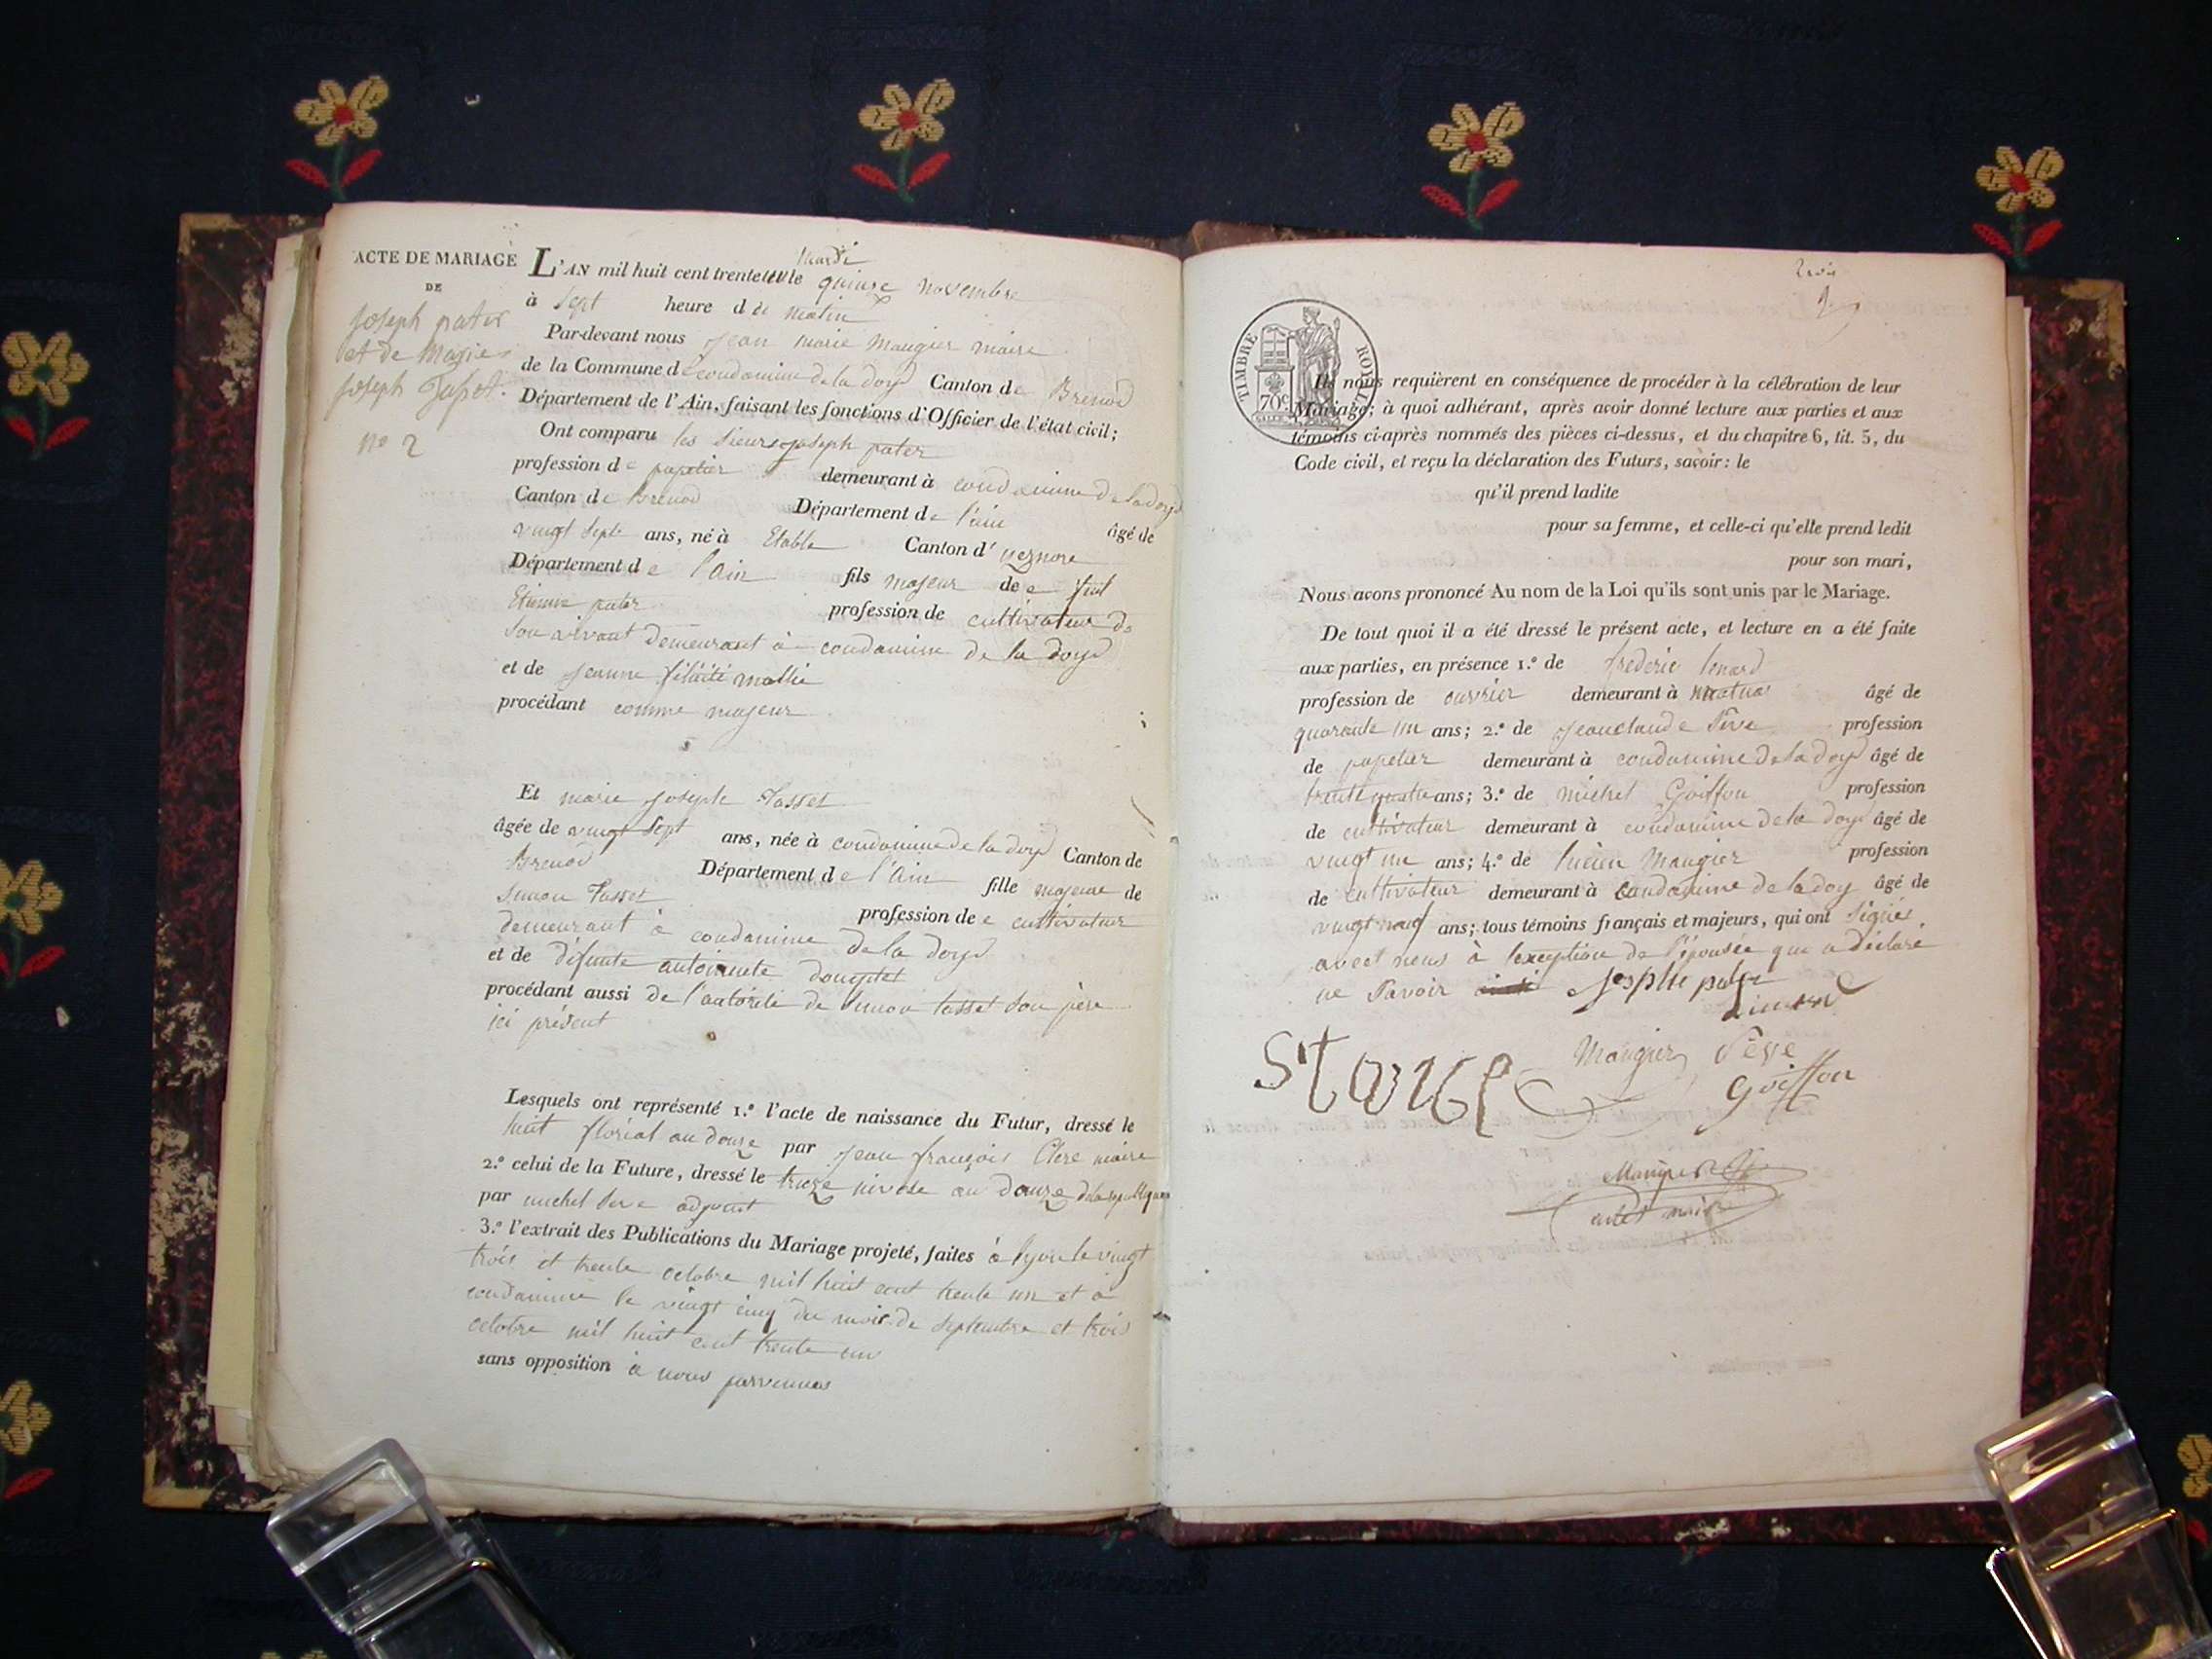 ACTE DE MARIAGE
DE
joseph pater
et de marie
joseph Tasset.
nº 2
L'AN mil huit cent trente un le mardi quinze novembre
à sept heure d du matin
Par-devant nous jean marie Maugier maire
de la Commune d condamine de la doye Canton de Brenod
Département de l'Ain, faisant les fonctions d'Officier de l'état civil;
Ont comparu les sieurs joseph pater
profession de papetier demeurant à condamine de la doye
Canton de Brenod Département de l'ain âgé de
vingt sept ans, né à Etable Canton d'
Département de l'Ain fils majeur de feut
Etienne pater profession de cultivateur de
son vivant demeurant à condamine de la doye
et de jeanne félicité
procédant comme majeur
Et marie joseph Tasset
âgée de vingt sept ans, née à condamine de la doye Canton de
Brenod Département de l'Ain fille majeure de
Simon Tasset profession de cultivateur
demeurant à condamine de la doye
et de défunte antoinette
procédant aussi de l'autorité de Simon tasset son père
ici présent
Lesquels ont représenté 1.º l'acte de naissance du Futur, dressé le
huit floréal an douze par jean françois Clerc maire
2.º celui de la Future, dressé le treize nivose an douze de la republique
par michel adjoint
3.º l'extrait des Publications du Mariage projeté, faites à lyon le vingt
trois et trente octobre mil huit cent trente un et à
condamine le vingt cinq du mois de septembre et trois
octobre mil huit cent trente un
sans opposition à nous parvenues
TIMBRE ROYAL
70c
Ils nous requièrent en conséquence de procéder à la célébration de leur
Mariage; à quoi adhérant, après avoir donné lecture aux parties et aux
témoins ci-après nommés des pièces ci-dessus, et du chapitre 6, tit. 5, du
Code civil, et reçu la déclaration des Futurs, savoir: le
qu'il prend ladite
pour sa femme, et celle-ci qu'elle prend ledit
pour son mari,
Nous avons prononcé Au nom de la Loi qu'ils sont unis par le Mariage.
De tout quoi il a été dressé le présent acte, et lecture en a été faite
aux parties, en présence 1.º de frederic
profession de ouvrier demeurant à âgé de
quarante un ans; 2.º de jean claude profession
de papetier demeurant à condamine de la doye âgé de
trente quatre ans; 3.º de michel Goiffon profession
de cultivateur demeurant à condamine de la doye âgé de
vingt un ans; 4.º de lucien Maugier profession
de cultivateur demeurant à condamine de la doy âgé de
vingt neuf ans; tous témoins français et majeurs, qui ont signés
avect nous à l'exception de l'épousée que a déclaré
ne savoir joseph pater
Maugier
Goiffon
Maugier
maire